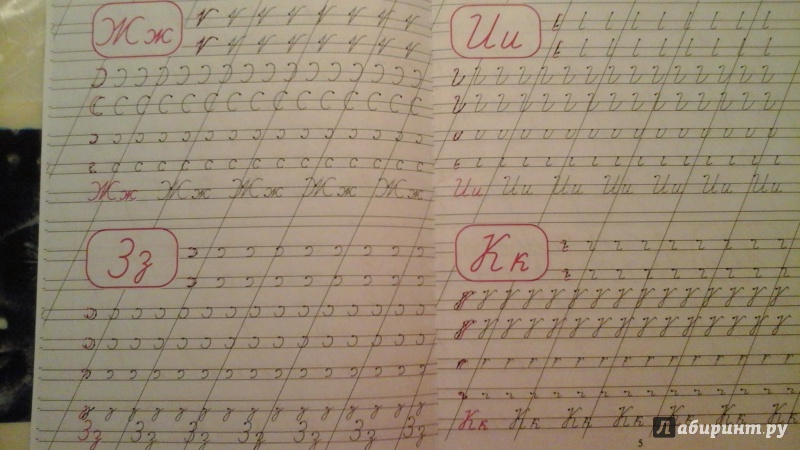 Жж
Жж Жж Жж Жж Жж
Зз
Зз Зз Зз Зз Зз Зз Зз
Ии
Ии Ии Ии Ии Ии Ии Ии
Кк
Кк Кк Кк Кк Кк Кк Кк
5
Лабиринт.ру